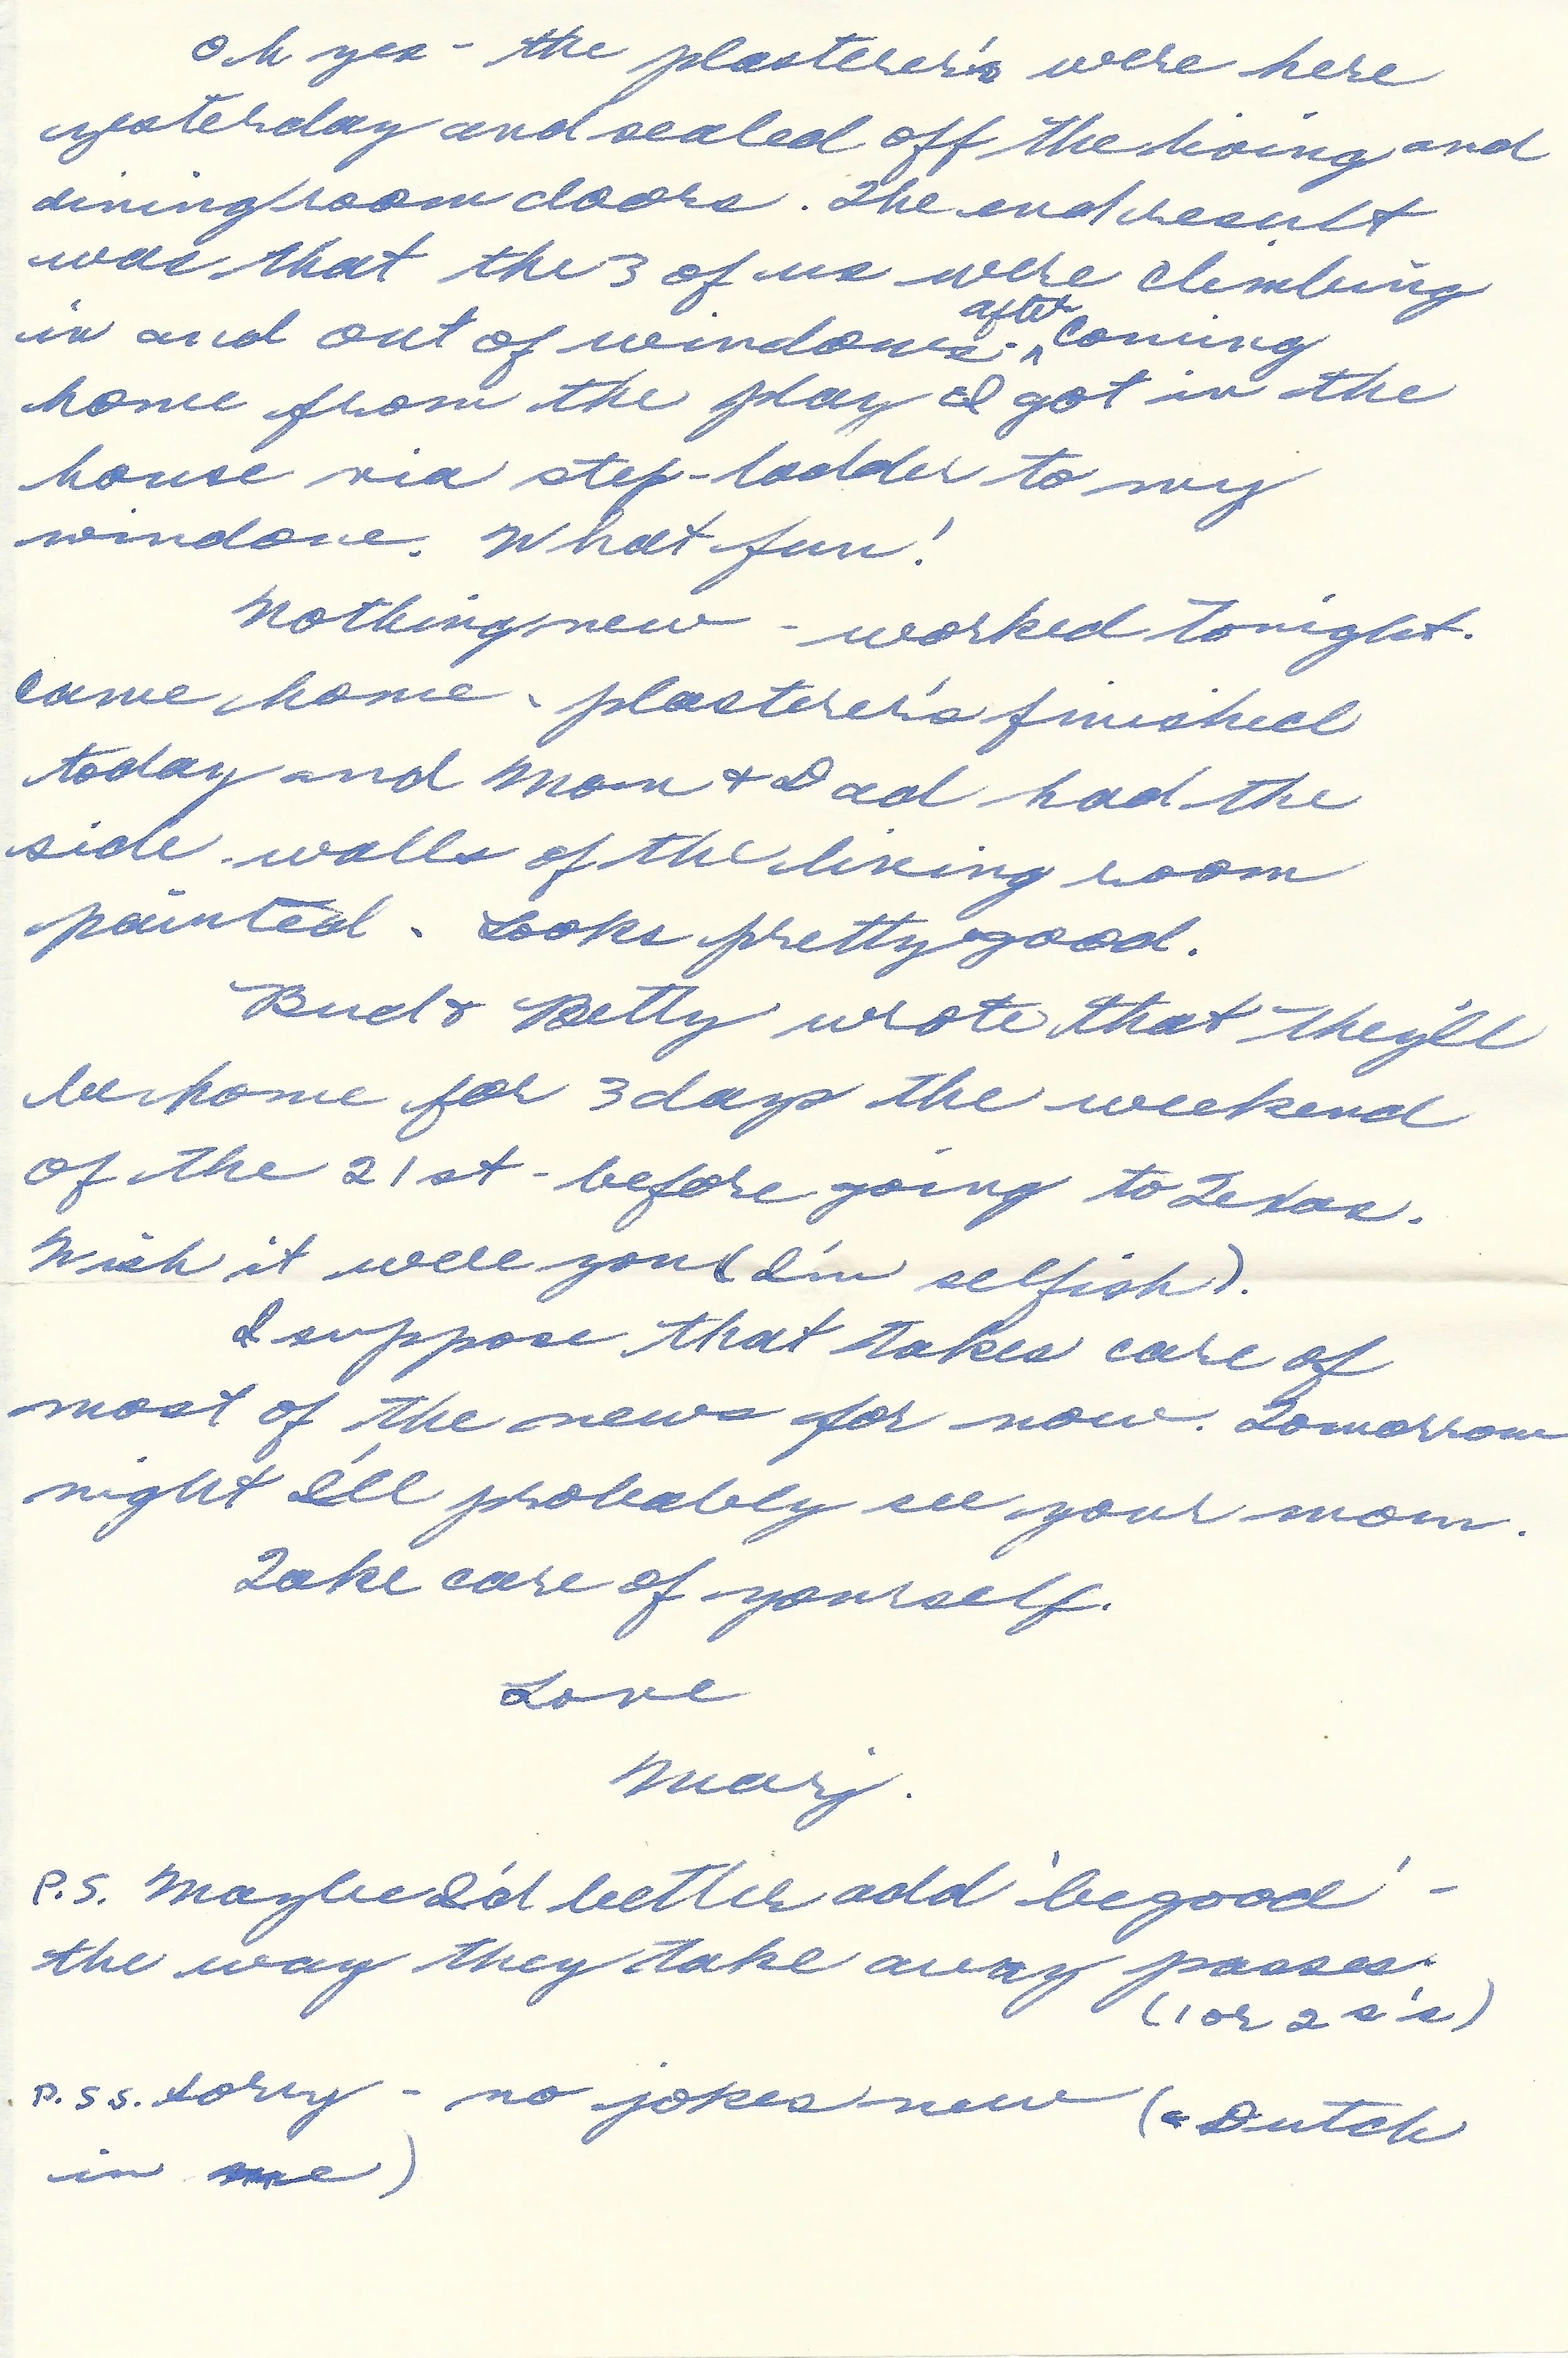 Oh yes - the plasterer's were here
yesterday and sealed off the living and
dining room doors. The end result
was that the 3 of us were climbing
in and out of windows - ^after coming
home from the play I got in the
house via step-ladder to my
window. What fun!
Nothing new - worked tonight.
Came home - plasterer's finished
today and Mom & Dad had the
side walls of the living room
painted. Looks pretty good.
Bud & Betty wrote that they'll
be home for 3 days the weekend
of the 21st - before going to Texas.
Wish it were you (I'm selfish).
I suppose that takes care of
most of the news for now. Tomorrow
night I'll probably see your mom.
Take care of yourself.
Love
Marj.
P.S. Maybe I'd better add 'be good' -
the way they take away passes.
(1 or 2 s's)
P.S.S. Sorry - no jokes new (Dutch
in me)